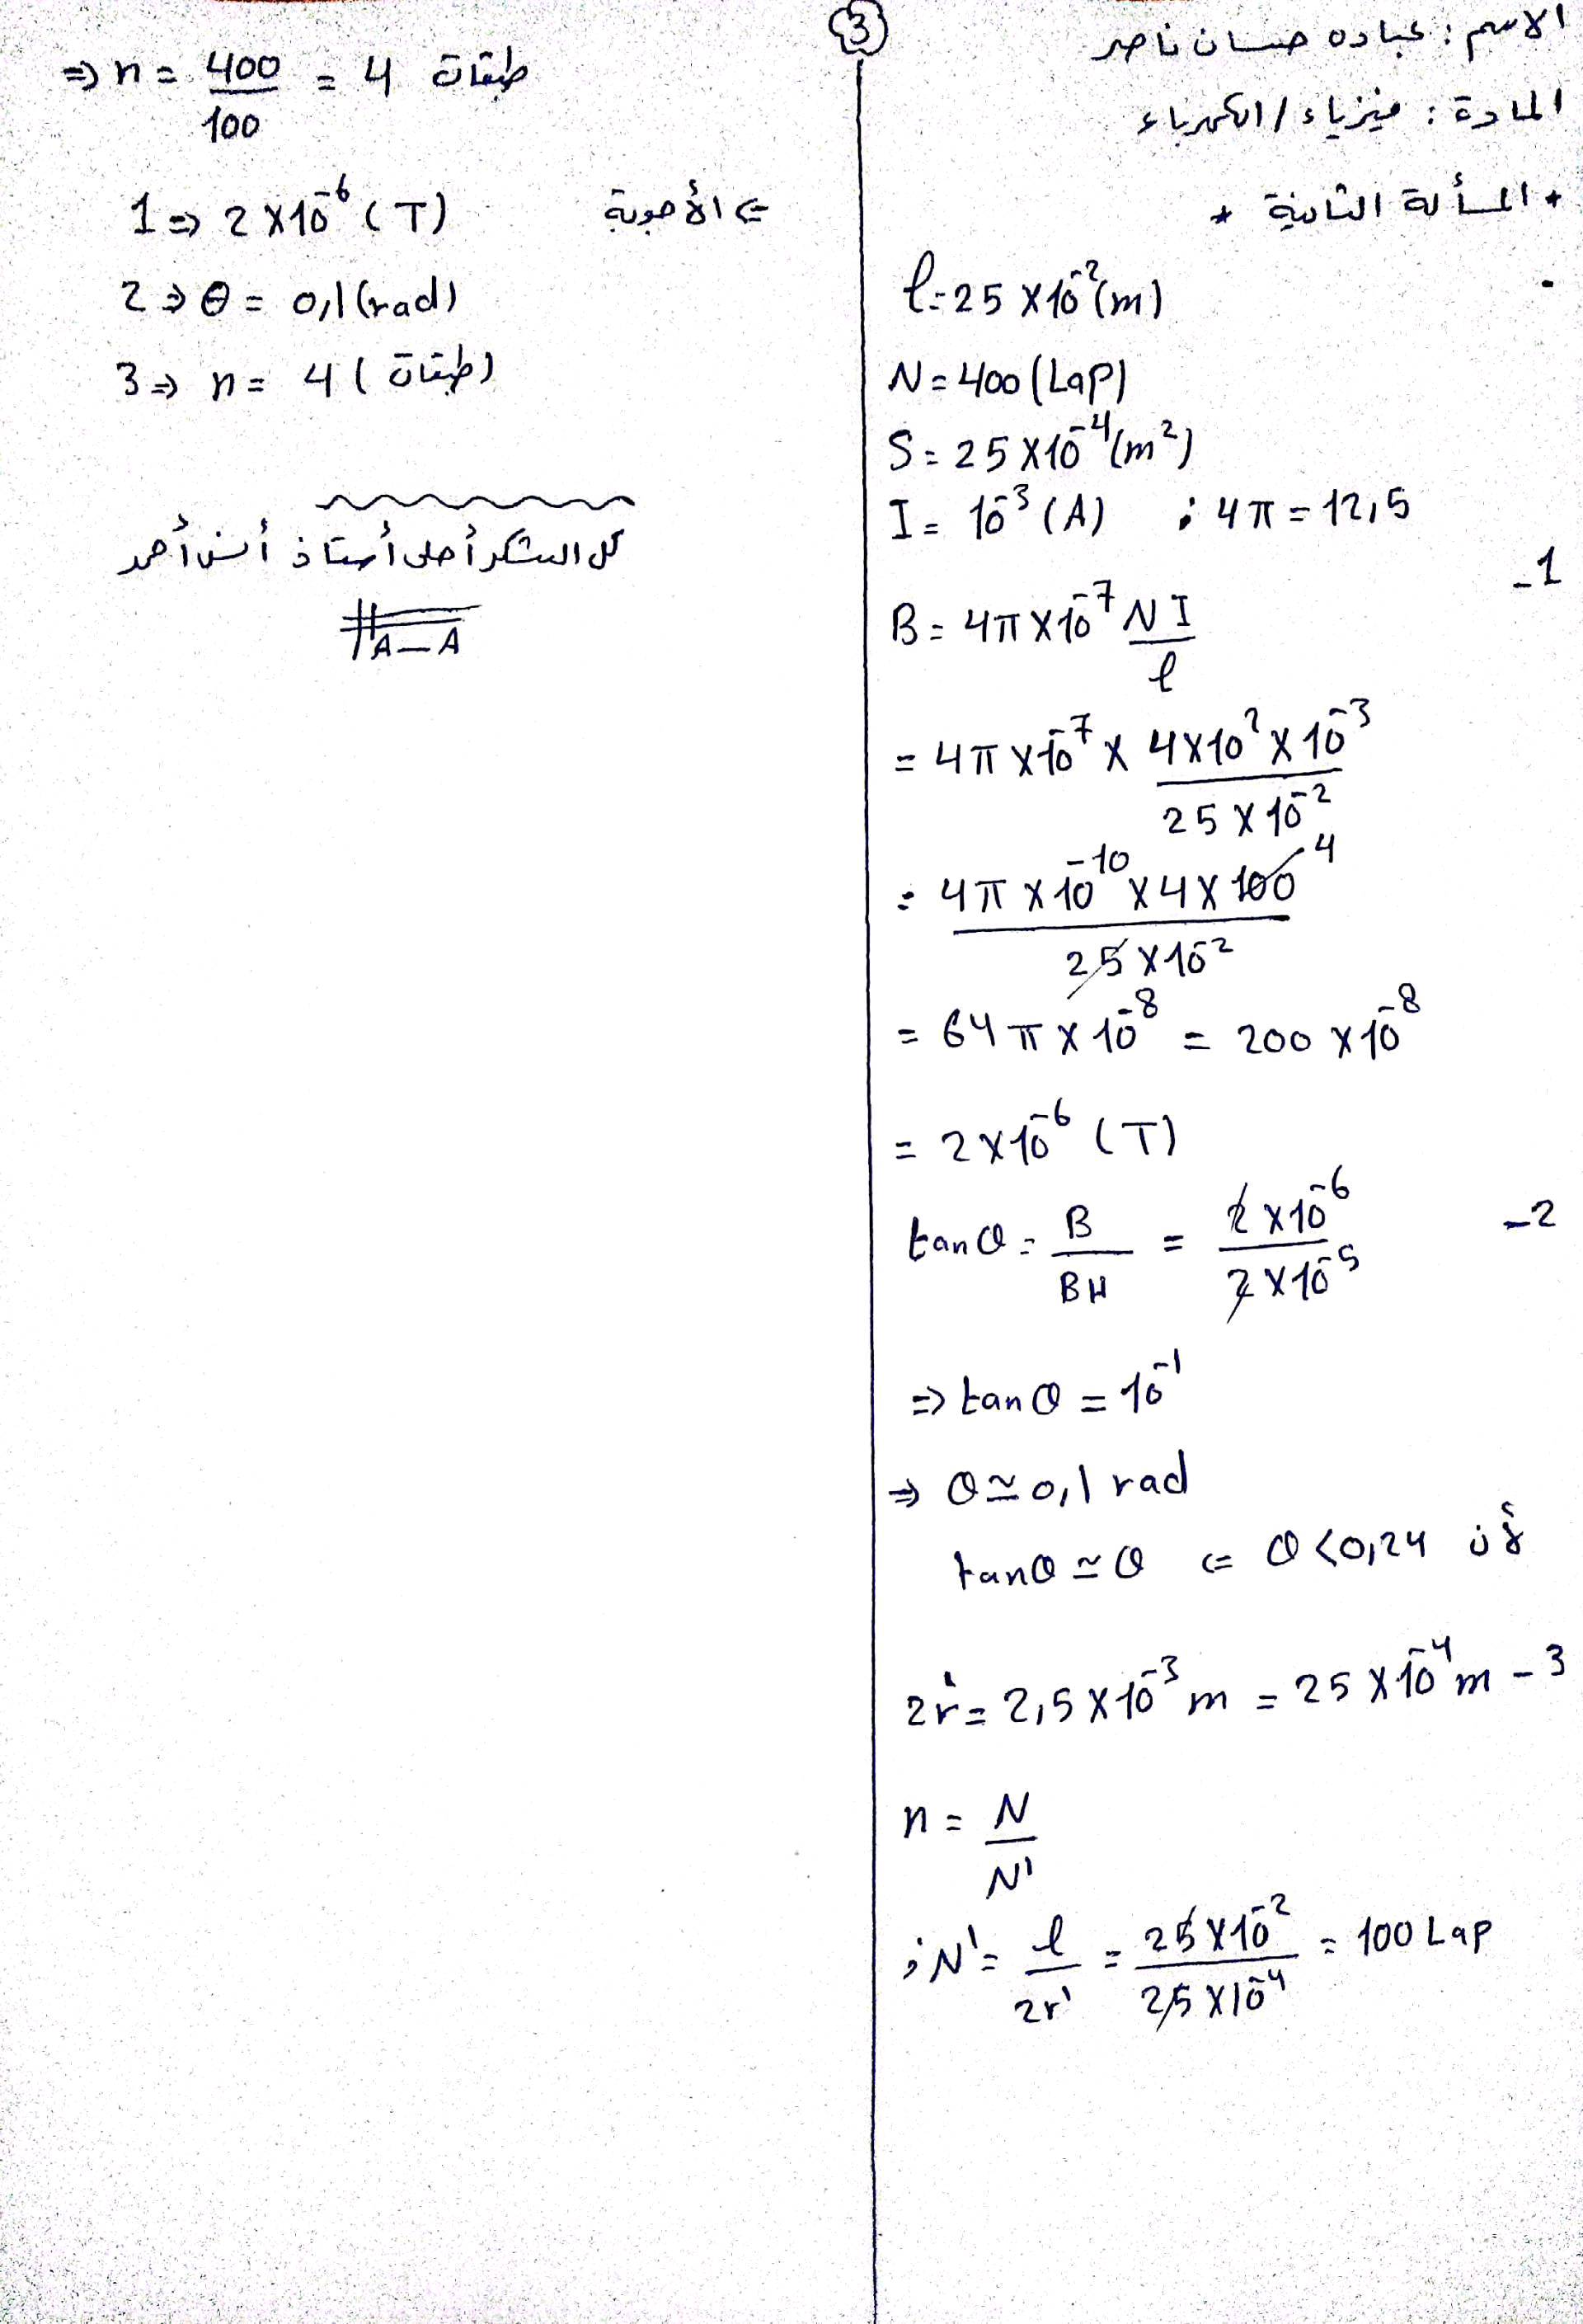 3
الاسم : عباده حسان ناصر
المادة : فيزياء / الكهرباء
* المسألة الثانية *
l = 25 × 10⁻² (m)
N = 400 (Lap)
S = 25 × 10⁻⁴ (m²)
I = 10⁻³ (A) ; 4π = 12,5
-1
B = 4π × 10⁻⁷ NI / l
= 4π × 10⁻⁷ × 4×10² × 10⁻³ / 25 × 10⁻²
= 4π × 10⁻¹⁰ × 4 × 100 4 / 25 × 10⁻²
= 64π × 10⁻⁸ = 200 × 10⁻⁸
= 2 × 10⁻⁶ (T)
tan θ = B / BH = 2 × 10⁻⁶ / 2 × 10⁻⁵ -2
⇒ tan θ = 10⁻¹
⇒ θ ≃ 0,1 rad
لأن θ < 0,24 ⇐ tan θ ≃ θ
2r' = 2,5 × 10⁻³ m = 25 × 10⁻⁴ m -3
n = N / N'
; N' = l / 2r' = 25 × 10⁻² / 25 × 10⁻⁴ = 100 Lap
⇒ n = 400 / 100 = 4 طبقات
⇐ الأجوبة
1 ⇒ 2 × 10⁻⁶ (T)
2 ⇒ θ = 0,1 (rad)
3 ⇒ n = 4 (طبقات)
كل الشكر أحلى أستاذ أنس أحمد
A_A